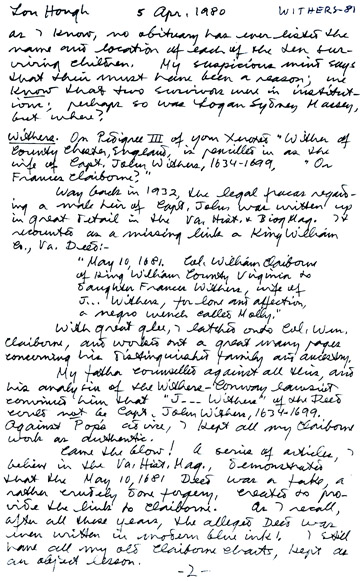 Lon Hough 5 Apr, 1980 WITHERS-81
as I know, no obituary has ever listed the
name and location of each of the ten sur-
viving children. My suspicious mind says
that there must have been a reason; we
know that two survivors were in institut-
ions; perhaps so was Logan Sydney Massey,
but where?
Withers. On Pedigree III of your Xeroxes "Wither of
County Chester, England, is pencilled in as the
wife of Capt. John Withers, 1634-1699, "Or
Frances Claiborne?"
Way back in 1932, the legal fracas regard-
ing a male heir of Capt. John was written up
in great detail in the Va. Hist. & Biog Mag. It
recounts as a missing link a King William
Co., Va. Deed:-
"May 10, 1681. Col. William Claiborne
of King William County Virginia to
daughter Frances Withers, wife of
J... Withers, for love and affection,
a negro wench called Molly."
With great glee, I latched onto Col. Wm.
Claiborne, and worked out a great many pages
concerning his distinguished family and ancestry.
My father counselled against all this, and
his analysis of the Withers-Conway lawsuit
convinced him that "J--- Withers" of the Deed
could not be Capt. John Withers, 1634-1699.
Against Pop's advice, I kept all my Claiborne
work as authentic.
Came the blow! A series of articles, I
believe in the Va. Hist. Mag., demonstrated
that the May 10, 1681 Deed was a fake, a
rather crudely done forgery, created to pro-
vide the link to Claiborne. As I recall,
after all these years, the alleged Deed was
even written in modern blue ink! I still
have all my old Claiborne charts, kept as
an object lesson.
-2-